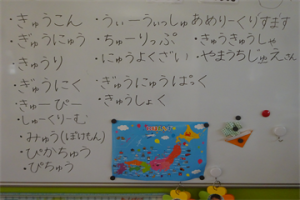 ・きゅうこん
・ぎゅうにゅう
・きゅうり
・ぎゅうにく
・きゅーぴー
・しゅーくりーむ
・みゅう(ぽけもん)
・ぴかちゅう
・ぴちゅう
・うぃーうぃっしゅあめりーくりすます
・ちゅーりっぷ
・にゅうよくざい
・ぎゅうにゅうぱっく
・きゅうしょく
・きゅうきゅうしゃ
・やまうちじゅえさん